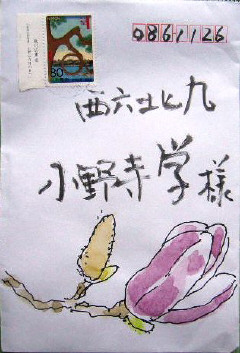 0861126
80
西六北九
小野寺学様